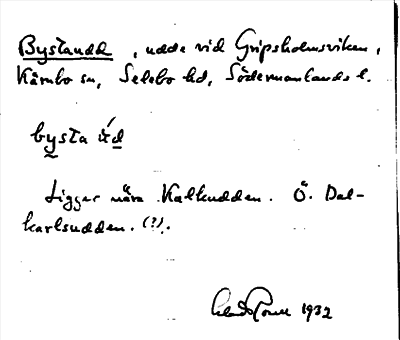 Bystaudd, udde vid Gripsholmsviken,
Kärnbo sn, Selebo hd, Södermanlands l.
bysta úd
Ligger nära Kalkudden. Ö. Dal-
karlsudden. (?).
1932